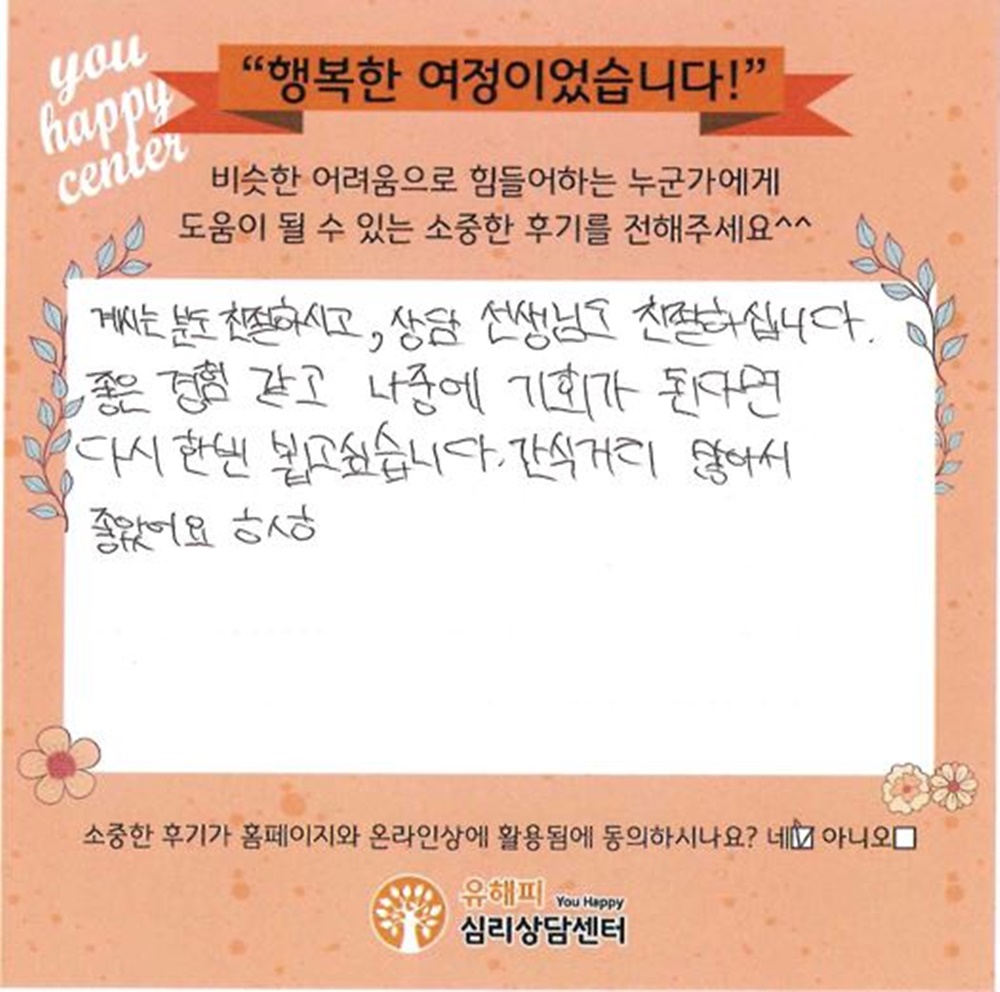 you
happy
center
“행복한 여정이었습니다!”
비슷한 어려움으로 힘들어하는 누군가에게
도움이 될 수 있는 소중한 후기를 전해주세요^^
계시는 분도 친절하시고, 상담 선생님도 친절하십니다.
좋은 경험 같고 나중에 기회가 된다면
다시 한번 뵙고싶습니다. 간식거리 많아서
좋았어요 ㅎㅅㅎ
소중한 후기가 홈페이지와 온라인상에 활용됨에 동의하시나요? 네☑ 아니오☐
유해피 You Happy
심리상담센터